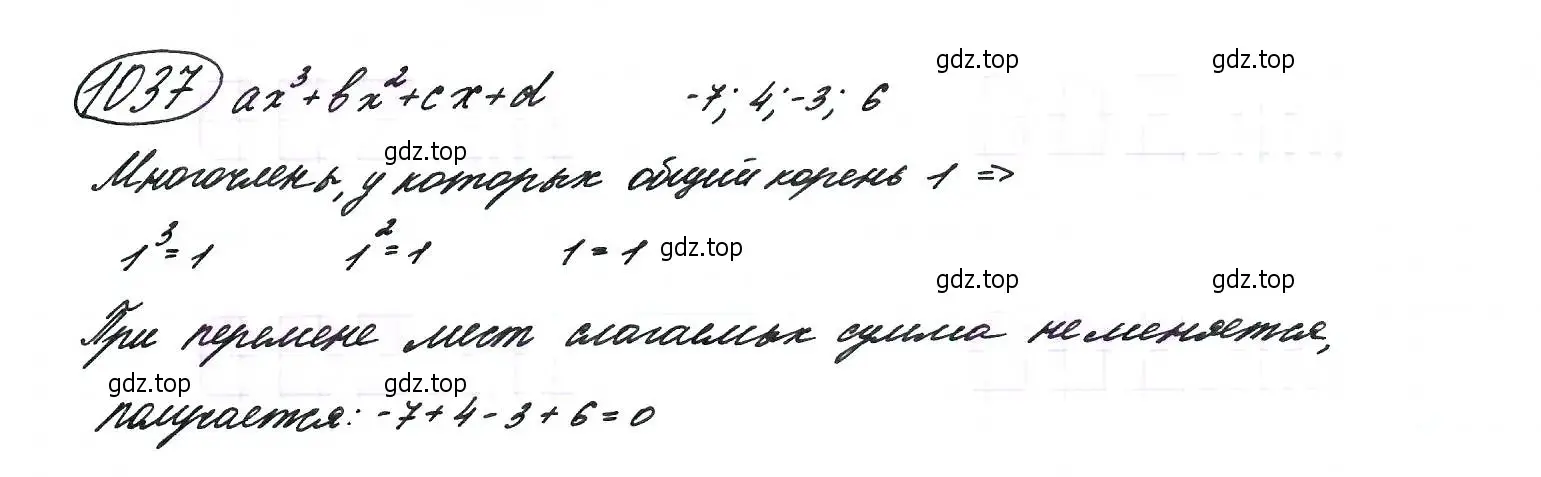 gdz.top gdz.top
1037 ax³+bx²+cx+d -7; 4; -3; 6
gdz.top
Многочлены, у которых общий корень 1 =>
1³=1 1²=1 1=1 gdz.top
gdz.top gdz.top
При перемене мест слагаемых сумма не меняется,
gdz.top gdz.top
получается: -7+4-3+6=0